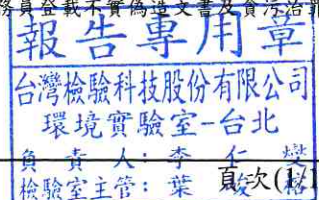 務員登載不實偽造文書及貪污治罪
報告專用章
台灣檢驗科技股份有限公司
環境實驗室-台北
負責人:李仁燮
檢驗室主管:葉
頁次(1/1